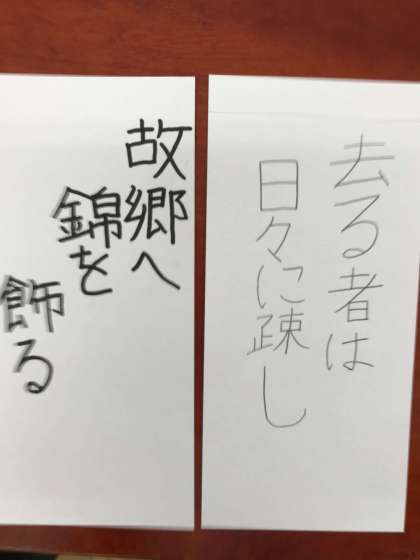 去る者は
日々に疎し
故郷へ
錦を
飾る